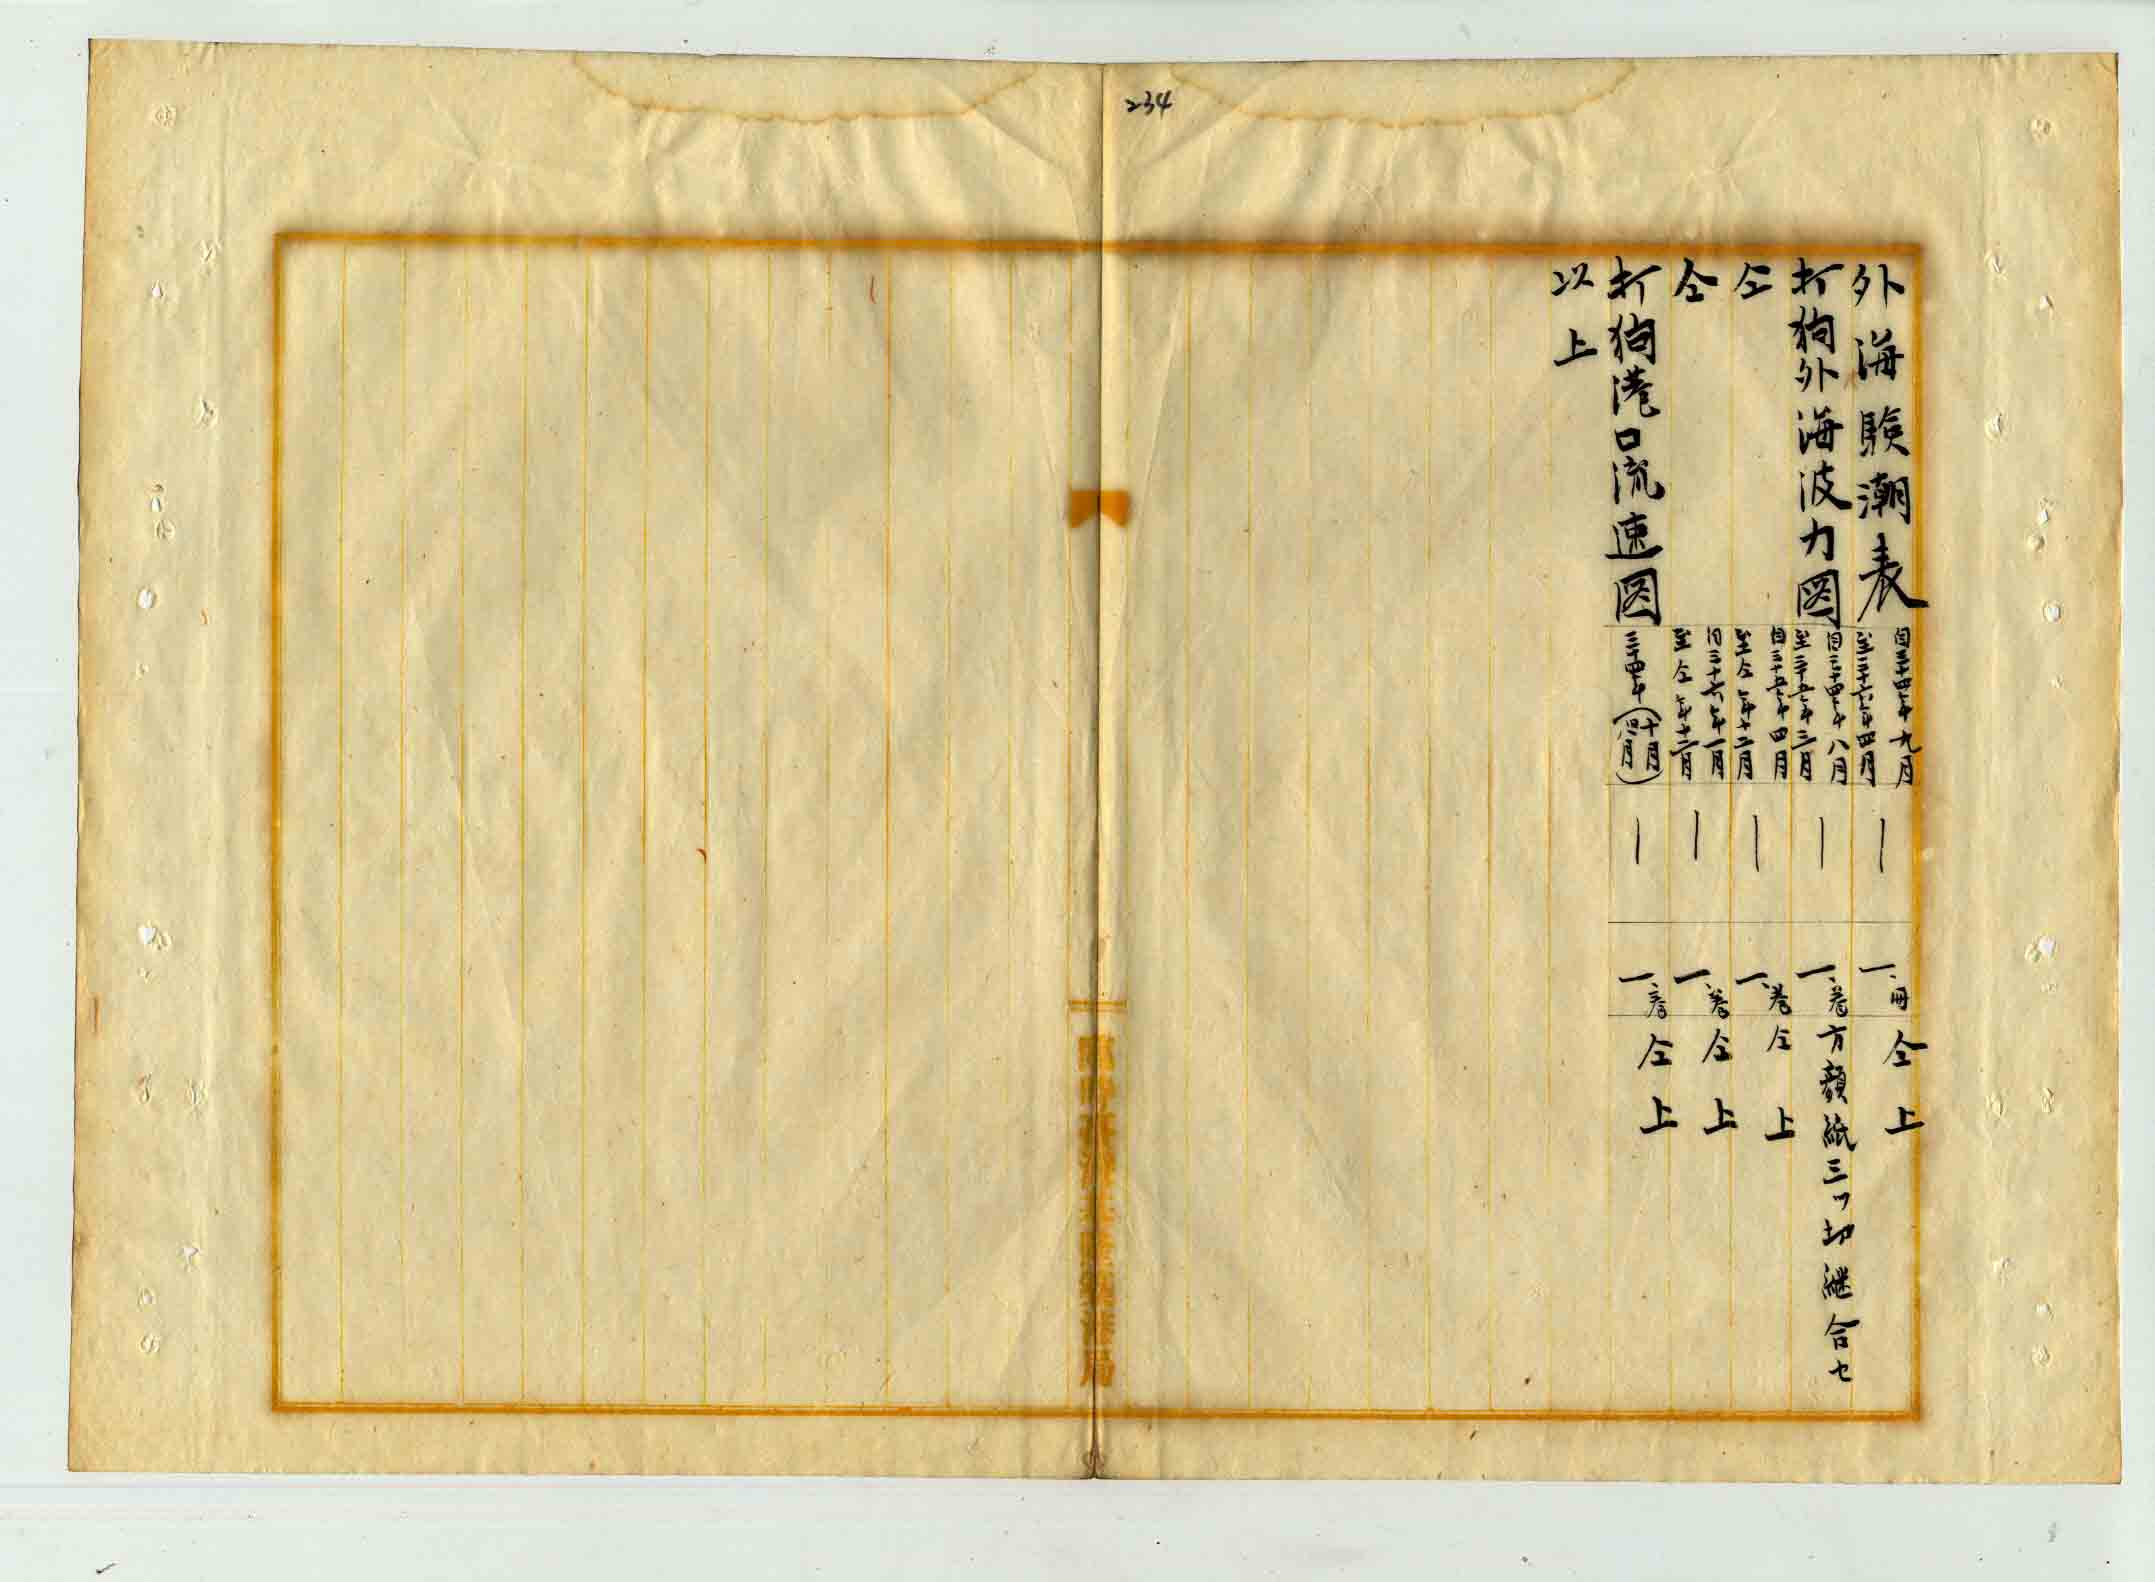 234
外海驗潮表 自三十四年九月 至三十六年四月 | 一、冊 仝上
打狗外海波力図 自三十四年八月 至三十五年三月 | 一、巻 方顔紙三ツ切継合セ
仝 自三十五年四月 至仝年十二月 | 一、巻 仝上
仝 自三十六年一月 至仝年十二月 | 一、巻 仝上
打狗港口流速図 三十四年 | 一、巻 仝上
以上